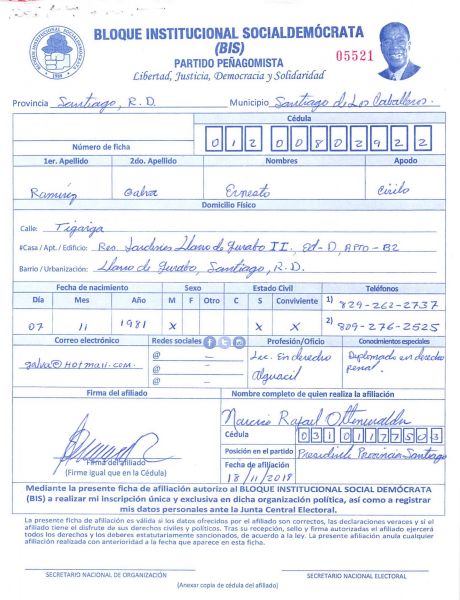 BLOQUE INSTITUCIONAL SOCIALDEMÓCRATA
(BIS)
PARTIDO PEÑAGOMISTA
Libertad, Justicia, Democracia y Solidaridad
05521
Provincia Santiago, R.D. Municipio Santiago de Los Caballeros.
Cédula
Número de ficha 012 0080292 2
1er. Apellido 2do. Apellido Nombres Apodo
Ramírez Galva Ernesto Cirilo
Domicilio Físico
Calle: Tigaiga
#Casa / Apt. / Edificio: Res. Jardines Llano de Gurabo II, Ed-D, APTO-B2
Barrio / Urbanización: Llano de Gurabo, Santiago, R.D.
Fecha de nacimiento Sexo Estado Civil Teléfonos
Día Mes Año M F Otro C S Conviviente 1) 829-262-2737
07 11 1981 X X 2) 809-276-2525
Correo electrónico Redes sociales Profesión/Oficio Conocimientos especiales
galva@hotmail.com. @ — Lic. En derecho Diplomado en derecho
@ — Alguacil penal.
@ —
Firma del afiliado Nombre completo de quien realiza la afiliación
Narciso Rafael
Cédula 031 0117750 3
Posición en el partido Presidente Provincia Santiago
Firma del afiliado
(Firme igual que en la Cédula)
Fecha de afiliación
18/11/2018
Mediante la presente ficha de afiliación autorizo al BLOQUE INSTITUCIONAL SOCIAL DEMÓCRATA
(BIS) a realizar mi inscripción única y exclusiva en dicha organización política, así como a registrar
mis datos personales ante la Junta Central Electoral.
La presente ficha de afiliación es válida si los datos ofrecidos por el afiliado son correctos, las declaraciones veraces y si el
afiliado tiene el disfrute de sus derechos civiles y políticos. Tras su recepción, sello y firma autorizadas el afiliado ejercerá
todos los derechos y los deberes estatutariamente sancionados, de acuerdo a la ley. La presente afiliación anula cualquier
afiliación realizada con anterioridad a la fecha que aparece en esta ficha.
SECRETARIO NACIONAL DE ORGANIZACIÓN SECRETARIO NACIONAL ELECTORAL
(Anexar copia de cédula del afiliado)